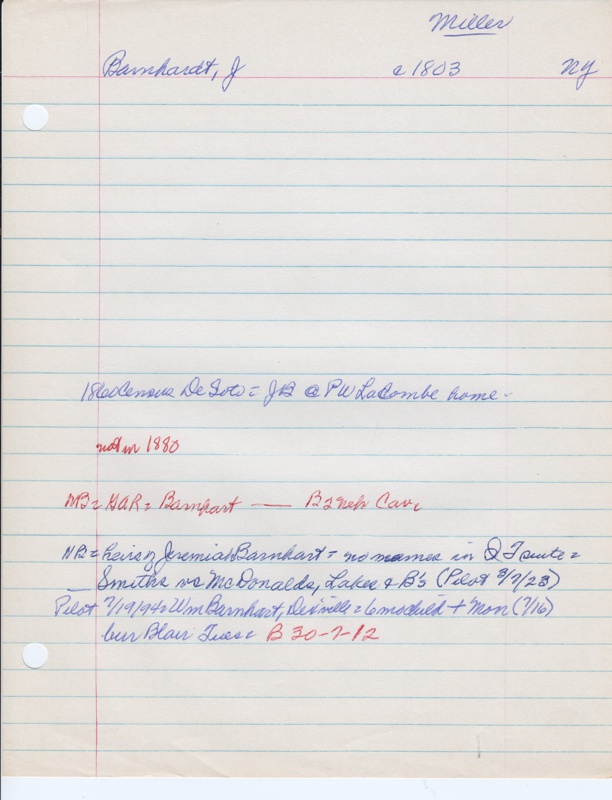 Miller
Barnhardt, J c 1803 NY
1860 Census De Soto = JB @ PW LaCombe home -
not in 1880
NB = GAR = Barnhart — B 2 Neb Cav.
NB = heirs of Jeremiah Barnhart = no names in Q T suite =
Smiths vs McDonalds, Lakes & B's (Pilot 3/7/28)
Pilot 7/19/94 = Wm Barnhart, DeSville = 6 mos child + Mon (7/16)
bur Blair Tues = B 30-7-12